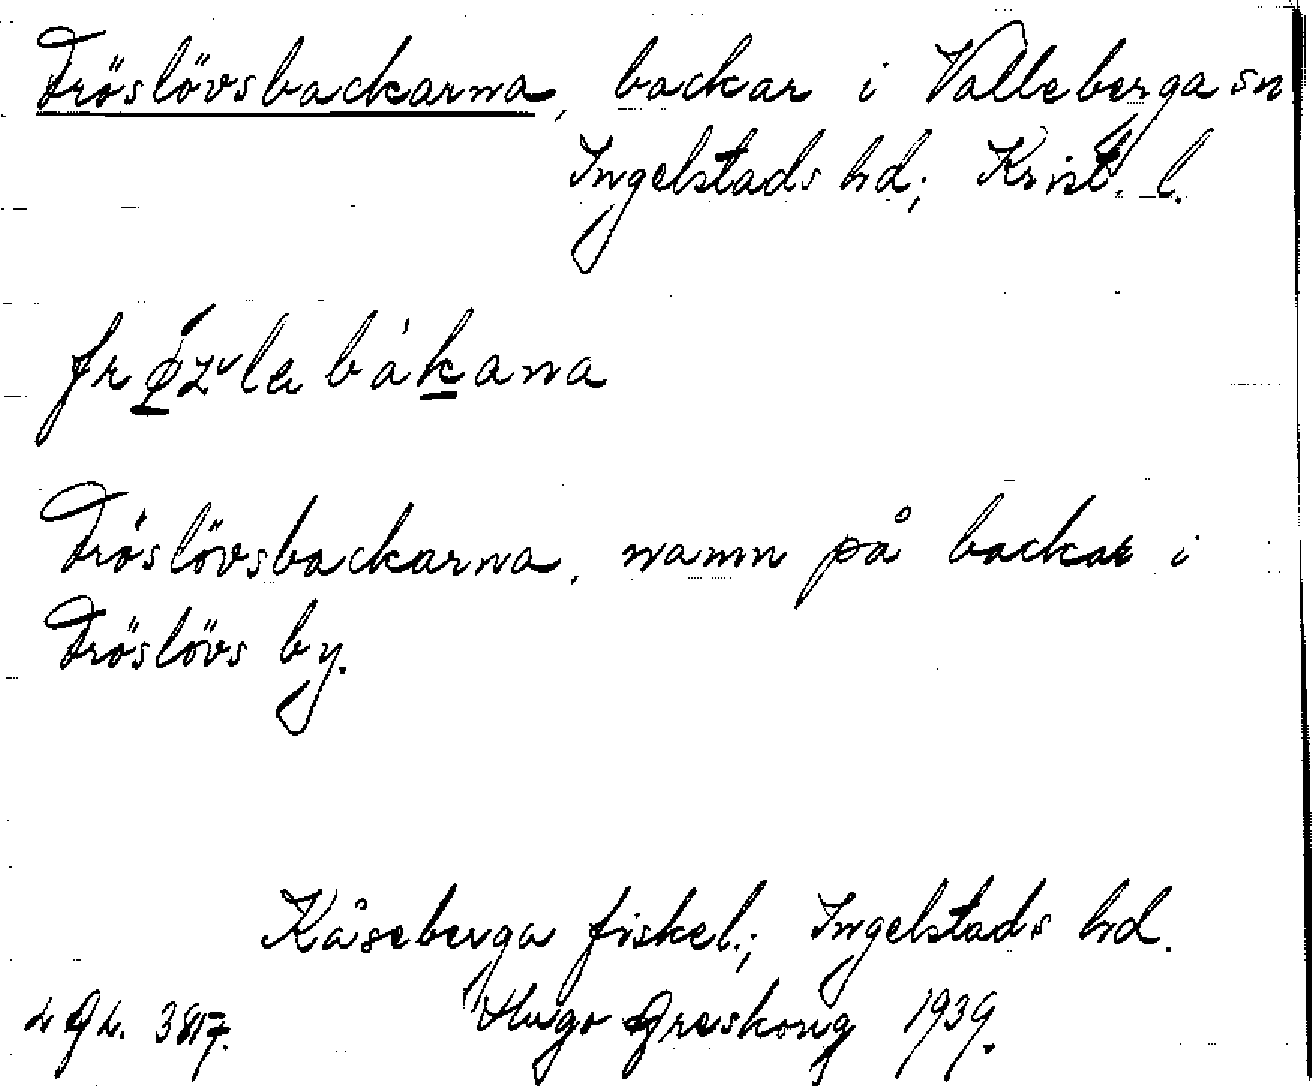 Fröslövsbackarna, backar i Valleberga sn
Ingelstads hd; Krist. l.
Fröslövsbackarna, namn på backar i
Fröslövs by.
Kåseberga fiskel.; Ingelstads hd.
Hugo Areskoug 1939.